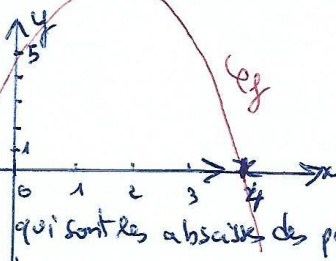 y
5
𝒞f
1
0 1 2 3 4 x
qui sont les abscisses des